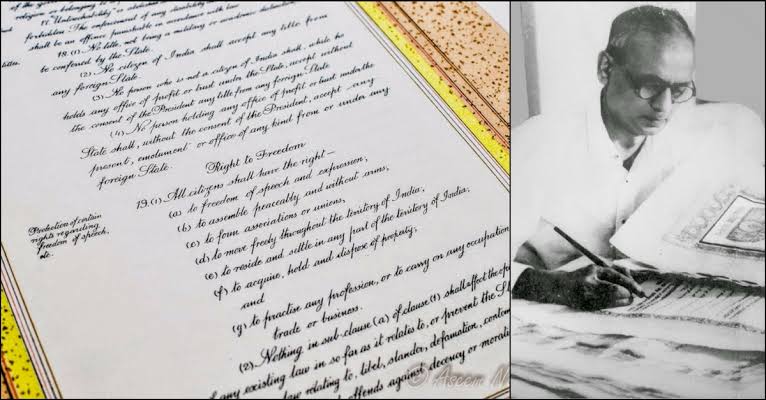 religion or belonging to
17. "Untouchability" is abolished
forbidden. The enforcement of any disability
shall be an offence punishable in accordance with law.
18. (1) No title, not being a military or academic distinction,
be conferred by the State.
(2) No citizen of India shall accept any title from
any foreign State.
(3) No person who is not a citizen of India shall, while he
holds any office of profit or trust under the State, accept without
the consent of the President any title from any foreign State.
(4) No person holding any office of profit or trust under the
State shall, without the consent of the President, accept any
present, emolument or office of any kind from or under any
foreign State.
Right to Freedom
Protection of certain
rights regarding
freedom of speech,
etc.
19. (1) All citizens shall have the right —
(a) to freedom of speech and expression;
(b) to assemble peaceably and without arms;
(c) to form associations or unions;
(d) to move freely throughout the territory of India;
(e) to reside and settle in any part of the territory of India;
(f) to acquire, hold and dispose of property;
and
(g) to practise any profession, or to carry on any occupation
trade or business.
(2) Nothing in sub-clause (a) of clause (1) shall affect the
any existing law in so far as it relates to, or prevent the
law relating to, libel, slander, defamation,
offends against decency or
© Aseem